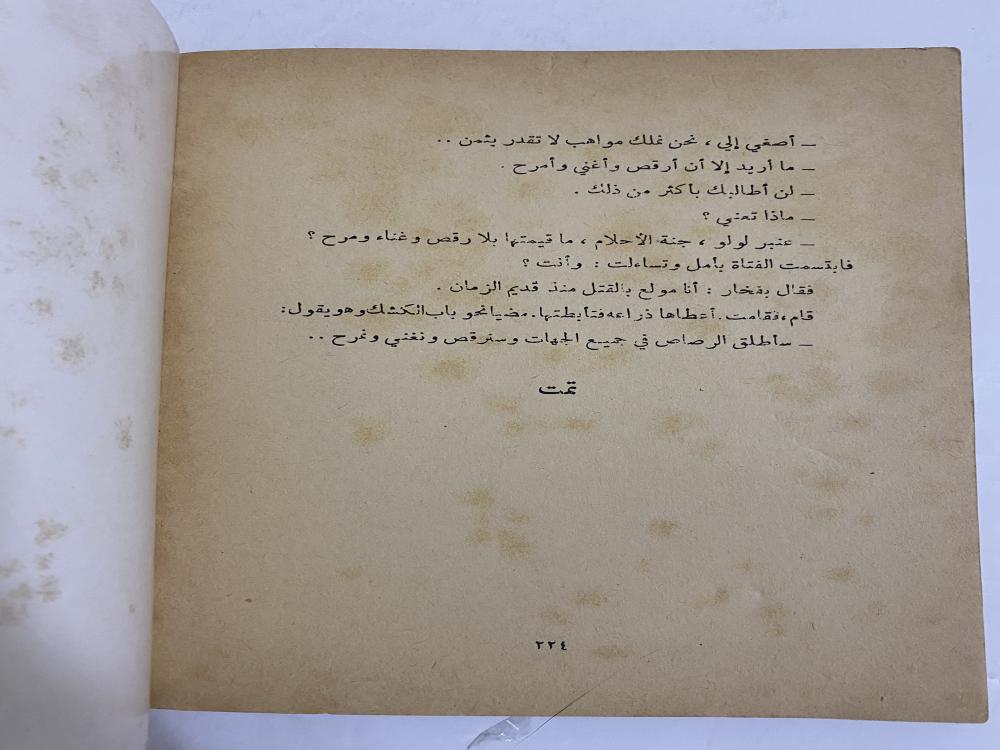 ـ أصغي إلي ، نحن نملك مواهب لا تقدر بثمن . .
ـ ما أريد إلا أن أرقص وأغني وأمرح .
ـ لن أطالبك بأكثر من ذلك .
ـ ماذا تعني ؟
ـ عنبر لولو ، جنة الأحلام ، ما قيمتها بلا رقص وغناء ومرح ؟
فابتسمت الفتاة بأمل وتساءلت : وأنت ؟
فقال بفخار : أنا مولع بالقتل منذ قديم الزمان .
قام، فقامت. أعطاها ذراعه فتأبطتها. مضيا نحو باب الكشك وهو يقول:
ـ سأطلق الرصاص في جميع الجهات وسنرقص ونغني ونمرح . .
تمت
٢٢٤